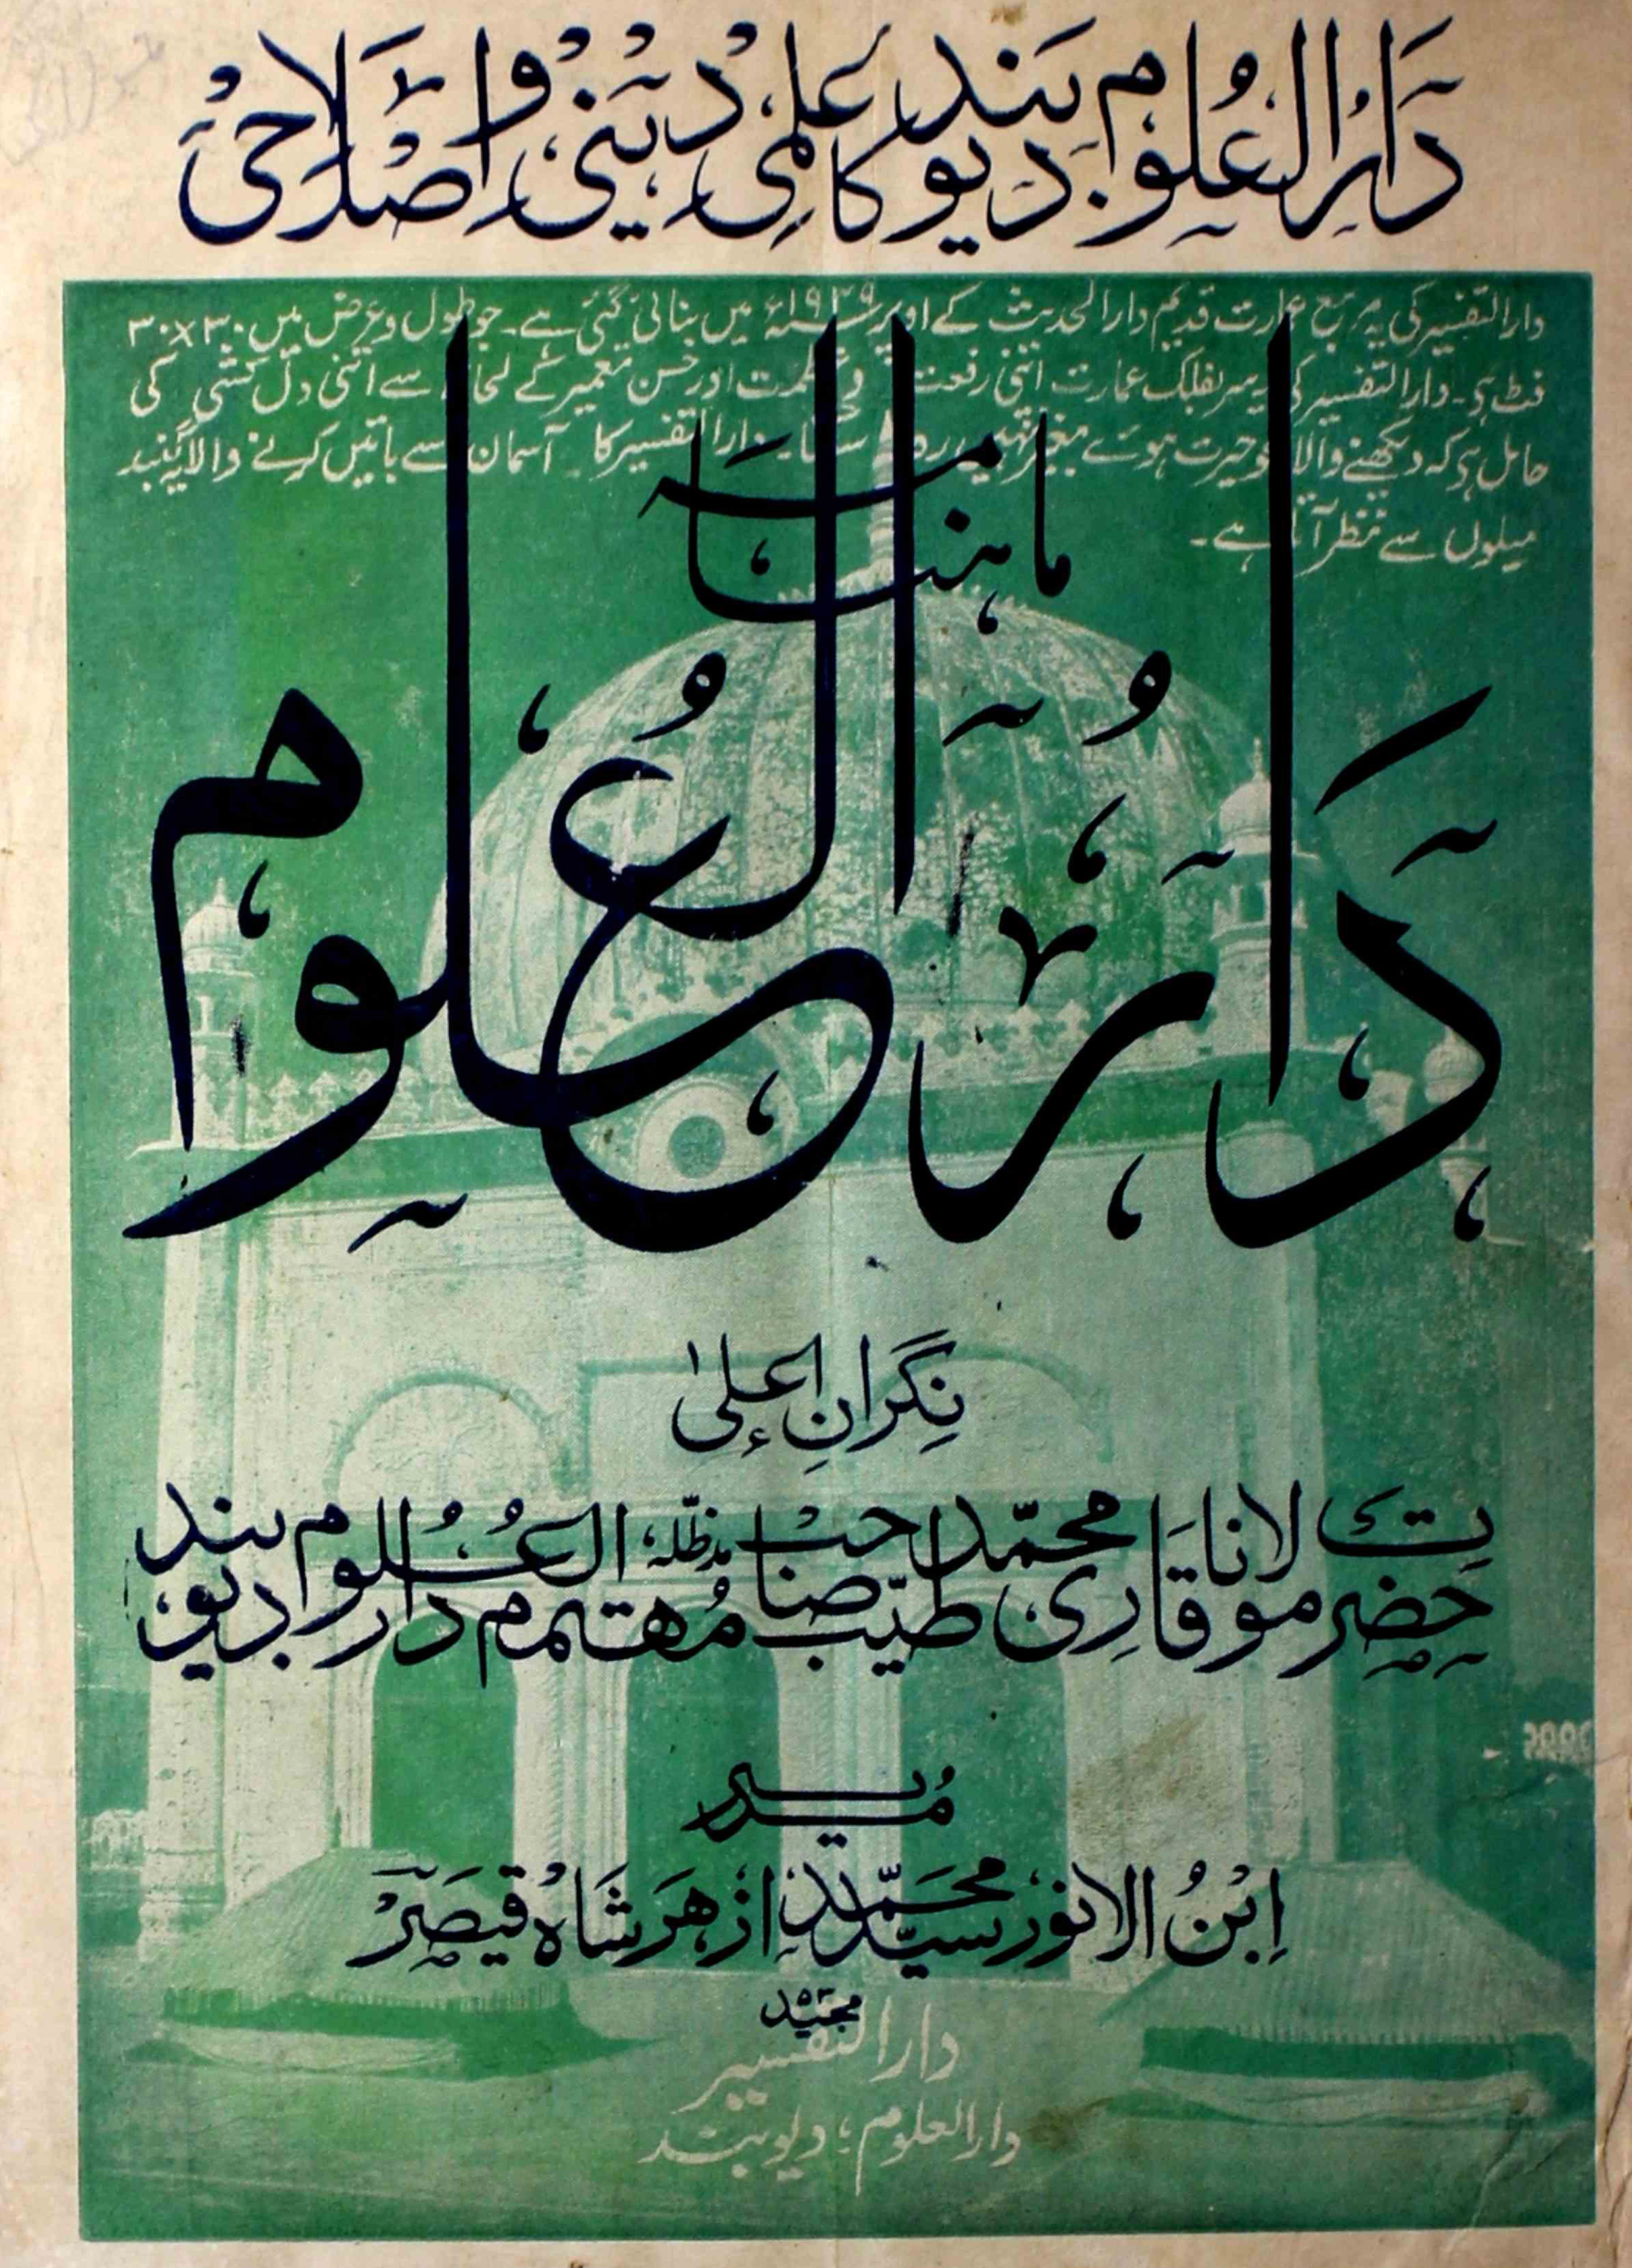 دَارُالعُلوم دیوبند کا علمی دینی و اصلاحی
دارالتفسیر کی یہ مربع عمارت قدیم دارالحدیث کے اوپر ۱۹۳۹ء میں بنائی گئی ہے۔ جو طول و عرض میں ۳۰×۳۰
فٹ ہے۔ دارالتفسیر کی یہ سربفلک عمارت اتنی رفعت و عظمت اور حسن تعمیر کے لحاظ سے اتنی دل کشی کی
حامل ہے کہ دیکھنے والا محو حیرت ہوئے بغیر نہیں رہ سکتا۔ دارالتفسیر کا آسمان سے باتیں کرنے والا یہ گنبد
میلوں سے نظر آتا ہے۔
ماہنامہ
دَارُالعُلوم
نِگرانِ اعلیٰ
حضرت مولانا قاری محمّد طیّب صاحب مدظلّہ، مُہتمم دارالعُلوم دیوبند
مُدیر
اِبْنُ الانور سیّد محمّد ازہر شاہ قیصَر
مجید
دارالتفسیر
دارالعلوم؛ دیوبند